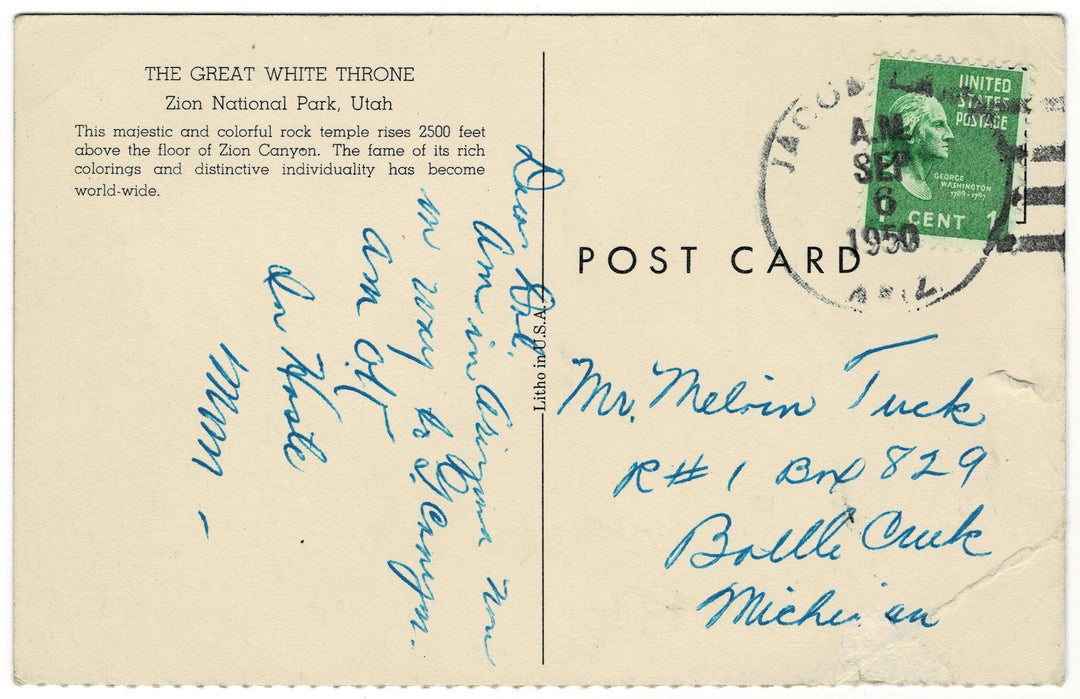 THE GREAT WHITE THRONE
Zion National Park, Utah
This majestic and colorful rock temple rises 2500 feet
above the floor of Zion Canyon. The fame of its rich
colorings and distinctive individuality has become
world-wide.
Dear
Am in Arizona now
on way to G Canyon.
am OK
In Haste
Mom -
Litho in U.S.A.
POST CARD
JACOB LAKE
A.M.
SEP
6
1950
ARIZ.
UNITED
STATES
POSTAGE
GEORGE
WASHINGTON
1789-1797
1 CENT 1
Mr. Melvin Tuck
R#1 Box 829
Battle Creek
Michigan